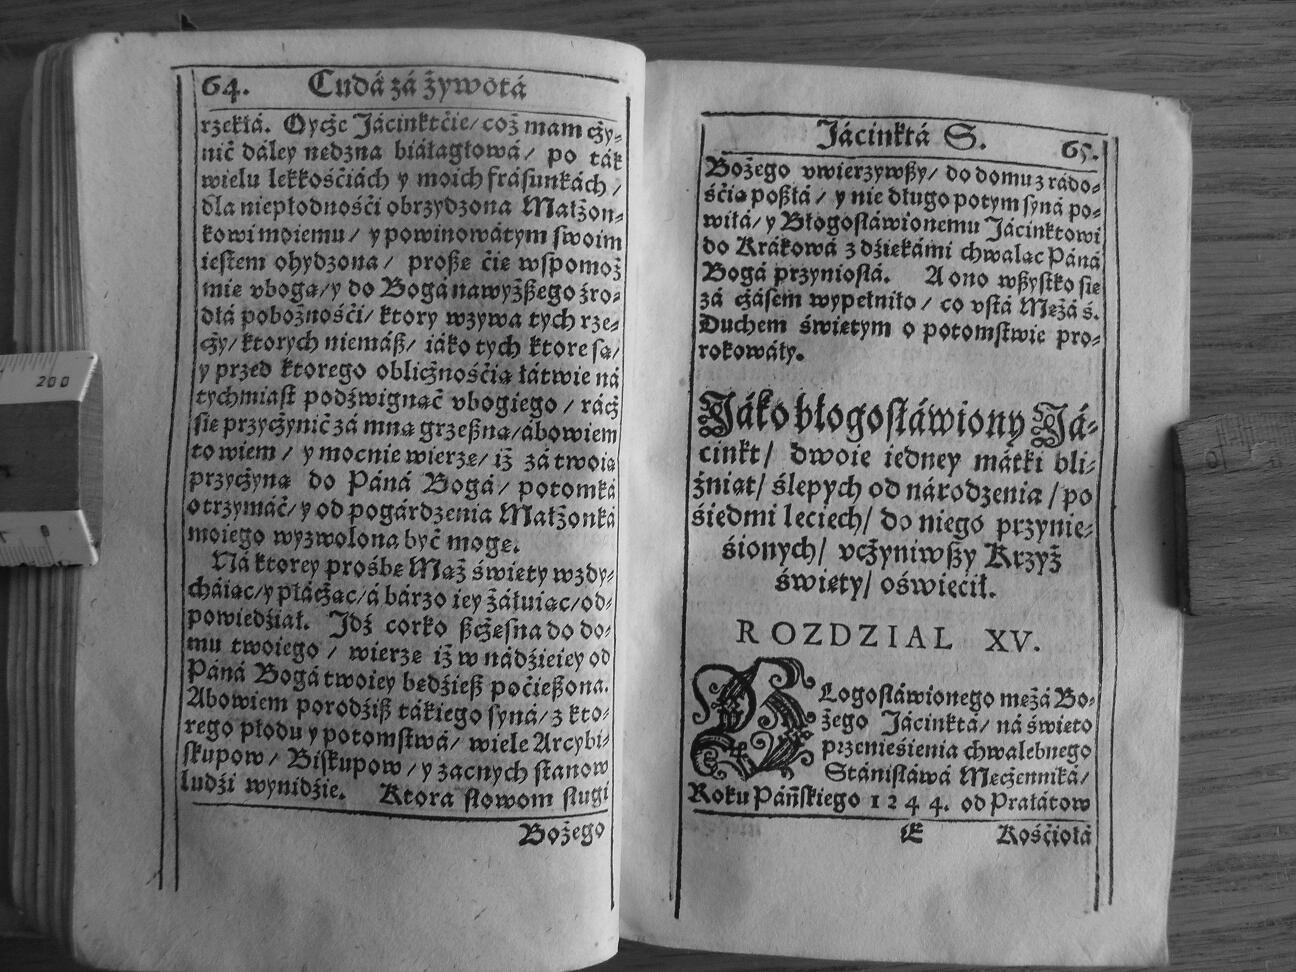 64. Cudá zá żywotá
rzekłá. Oycże Jácinktćie/ coż mam cży-
nić dáley nedzna białagłowá/ po ták
wielu lekkośćiách y moich frásunkách/
dla niepłodnośći obrzydzona Małżon-
kowi moiemu/ y powinowátym swoim
iestem ohydzona/ prosże ćie wspomoż
mie vboga/ y do Bogá nawyżßego źro-
dłá pobożnośći/ ktory wzywa tych rze-
cży/ ktorych niemáß/ iáko tych ktore są/
y przed ktorego oblicżnośćią łátwie ná
tychmiast podźwignąć vbogiego/ rácż
sie przycżynić zá mną grzeßną/ ábowiem
to wiem/ y mocnie wierze/ iż zá twoią
przycżyną do Páná Bogá/ potomká
otrzymáć/ y od pogárdzenia Małżonká
moiego wyzwolona być moge.
Ná ktorey prośbe Mąż święty wzdy-
cháiąc/ y płácżąc/ á bárzo iey żáłuiąc/ od-
powiedźiał. Jdź corko ßcżesna do do-
mu twoiego/ wierze iż w nádźieiey od
Páná Bogá twoiey będźieß poćießona.
Abowiem porodźiß tákiego syná/ z kto-
rego płodu y potomstwá/ wiele Arcybi-
skupow/ Biskupow/ y zacnych stanow
ludźi wynidźie. Ktora słowom sługi
Bożego
Jácinktá S. 65.
Bożego vwierzywßy/ do domu z rádo-
śćią poßłá/ y nie długo potym syná po-
wiłá/ y Błogosłáwionemu Jácinktowi
do Krákowá z dźiekámi chwaląc Páná
Bogá przyniosłá. A ono wßystko sie
zá cżásem wypełniło/ co vstá Mężá ś.
Duchem świętym o potomstwie pro-
rokowáły.
Jáko błogosłáwiony Já-
cinkt/ dwoie iedney mátki bli-
źniąt/ ślepych od národzenia/ po
śiedmi leciech/ do niego przynie-
śionych/ vcżyniwßy Krzyż
święty/ oświećił.
ROZDZIAL XV.
BLogosłáwionego mężá Bo-
żego Jácinktá/ ná święto
przenieśienia chwalebnego
Stánisłáwá Mecżenniká/
Roku Páńskiego 1244. od Prałátow
E Kośćiołá